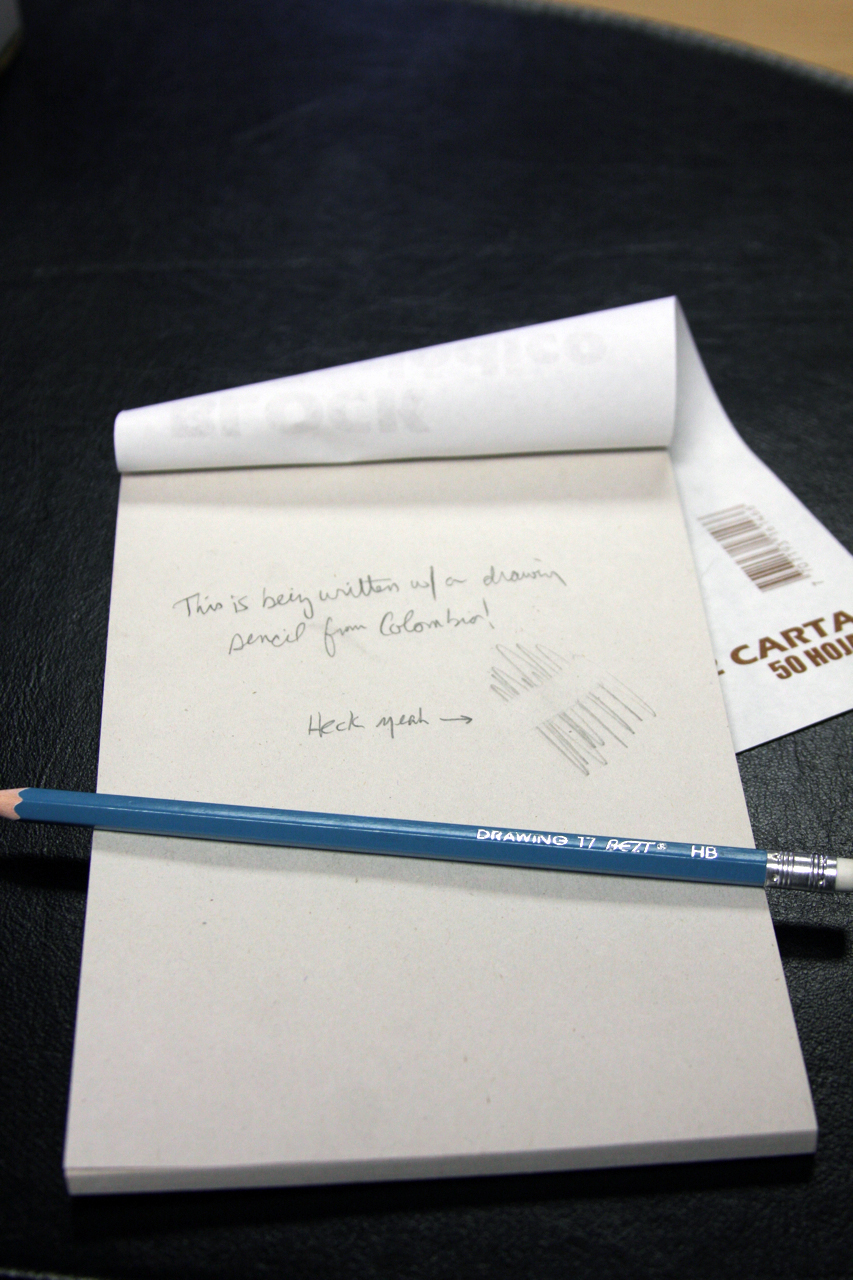 BLOCK
This is being written w/ a drawin
pencil from Colombia!
Heck yeah →
CARTA
50 HOJ
DRAWING 17 REXT® HB